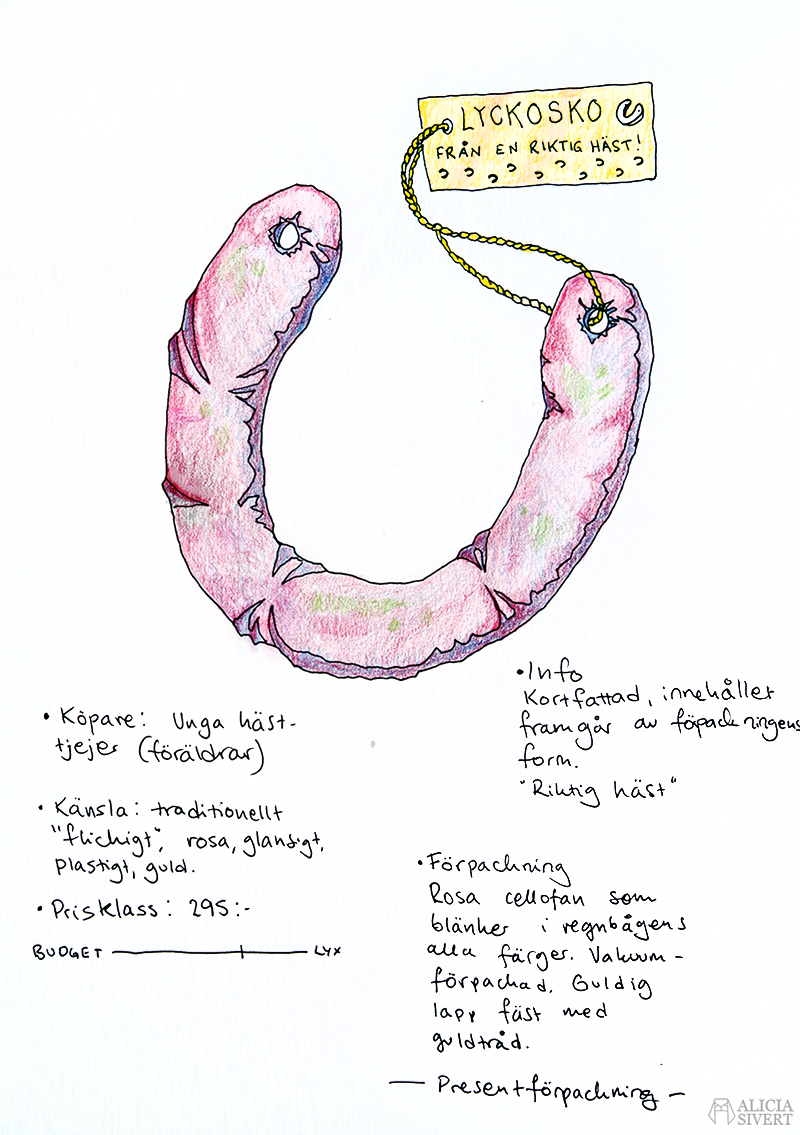 LYCKOSKO
FRÅN EN RIKTIG HÄST!
• Köpare: Unga häst-
tjejer (föräldrar)
• Känsla: traditionellt
"flickigt", rosa, glansigt,
plastigt, guld.
• Prisklass: 295:-
BUDGET
LYX
• Info
Kortfattad, innehållet
framgår av föpackningens
form.
"Riktig häst"
• Förpackning
Rosa cellofan som
blänker i regnbågens
alla färger. Vakuum-
förpackad. Guldig
lapp fäst med
guldtråd.
— Presentförpackning —
ALICIA
SIVERT